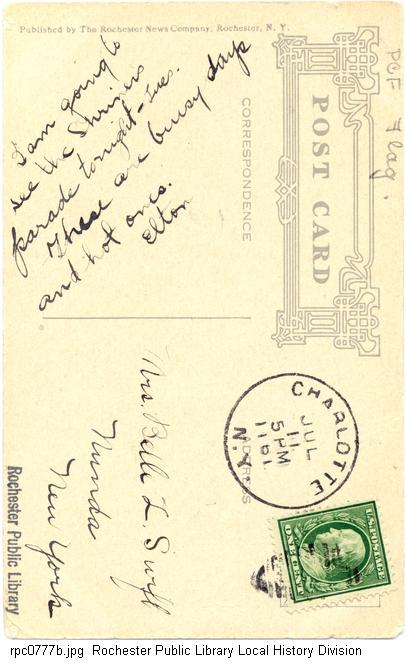 Published by The Rochester News Company, Rochester, N. Y.
PCF Flag.
POST CARD
CORRESPONDENCE
I am going to
see the Shriners
parade tonight - Tues.
These are busy days
and hot ones.
Elton
ADDRESS
CHARLOTTE
JUL
11
5 PM
1911
N.Y.
U.S. POSTAGE
ONE CENT
Mrs. Belle L. Swift
Nunda
New York
Rochester Public Library
rpc0777b.jpg Rochester Public Library Local History Division